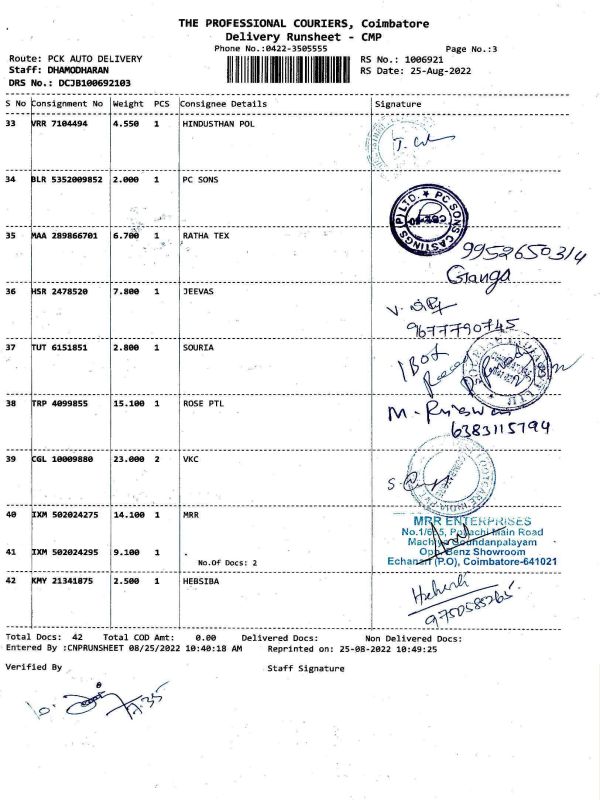 THE PROFESSIONAL COURIERS, Coimbatore
Delivery Runsheet - CMP
Phone No.:0422-3505555
Page No.:3
Route: PCK AUTO DELIVERY
RS No.: 1006921
Staff: DHAMODHARAN
RS Date: 25-Aug-2022
DRS No.: DCJB100692103
S No Consignment No Weight PCS Consignee Details Signature
33 VRR 7104494 4.550 1 HINDUSTHAN POL
34 BLR 5352009852 2.000 1 PC SONS
PC SONS CASTINGS (P) LTD.
35 MAA 289866701 6.700 1 RATHA TEX
9952650314
Ganga
36 HSR 2478520 7.800 1 JEEVAS
9677790745
37 TUT 6151851 2.800 1 SOURIA
1 Box
38 TRP 4099855 15.100 1 ROSE PTL
6383115794
39 CGL 10009880 23.000 2 VKC
40 IXM 502024275 14.100 1 MRR
MRR ENTERPRISES
No.1/665, Pollachi Main Road
Machiya Goundanpalayam
Opp. Benz Showroom
Echanari (P.O), Coimbatore-641021
41 IXM 502024295 9.100 1 .
No.Of Docs: 2
42 KMY 21341875 2.500 1 HEBSIBA
9750585265
Total Docs: 42 Total COD Amt: 0.00 Delivered Docs: Non Delivered Docs:
Entered By :CNPRUNSHEET 08/25/2022 10:40:18 AM Reprinted on: 25-08-2022 10:49:25
Verified By Staff Signature